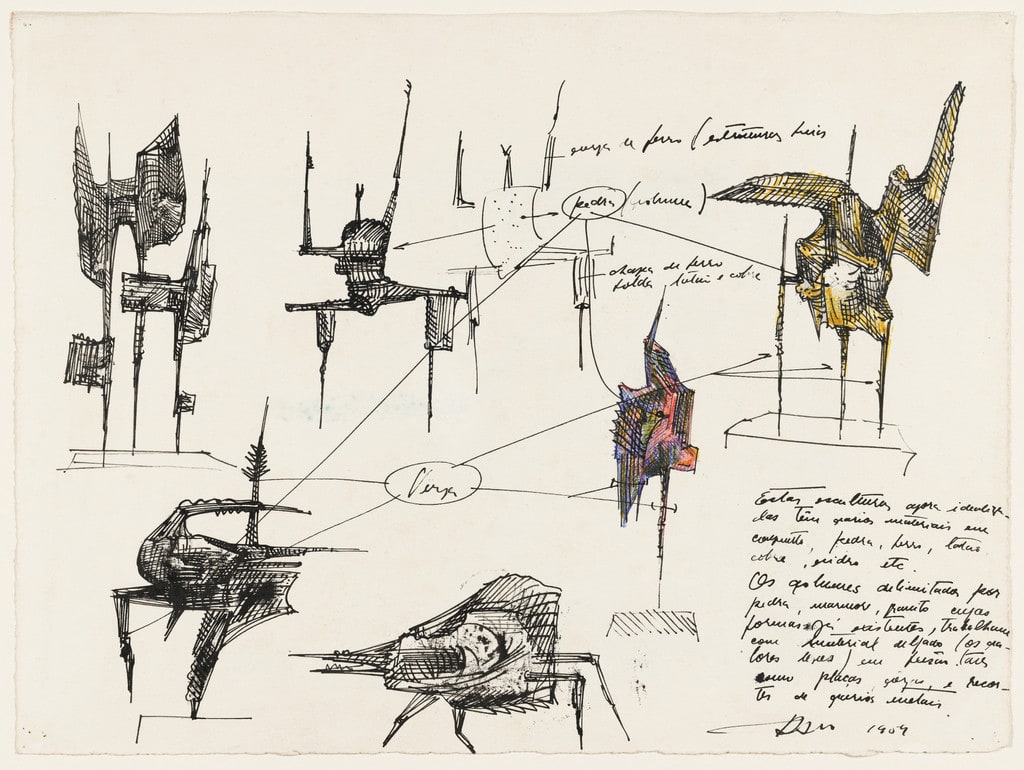 de ferro (estruturas
pedra (volume)
chapa de ferro
solda latão e cobre
Verga
Estas esculturas agora idealiza-
das têm varios materiais em
conjunto, pedra, ferro, latão
cobre, vidro etc.
Os volumes delimitados por
pedra, marmore, granito cujas
formas já existentes, trabalham
com material delgado (os va-
lores leves) em
como placas e recor-
tes de varios metais.